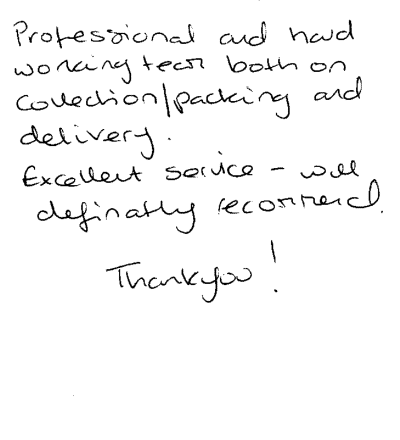 Professional and hard
working team both on
collection/packing and
delivery.
Excellent service - will
definatly recommend.
Thankyou!